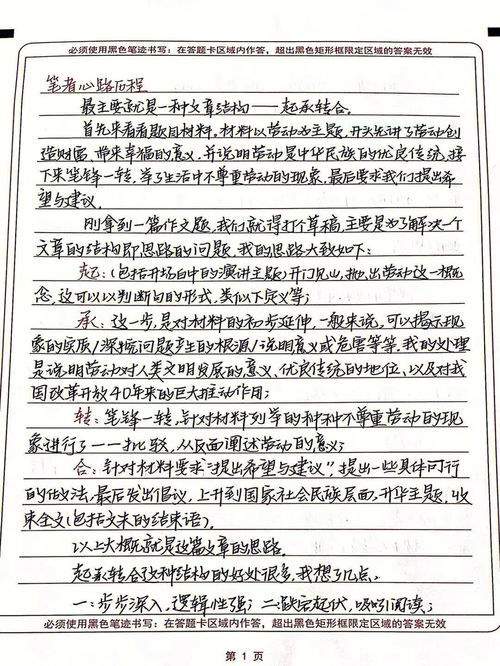 必须使用黑色笔迹书写：在答题卡区域内作答，超出黑色矩形框限定区域的答案无效
笔者心路历程
最主要就是一种文章结构——起承转合。
首先来看看题目材料，材料以劳动为主题，开头先讲了劳动创
造财富，带来幸福的意义，并说明劳动是中华民族的优良传统，接
下来笔锋一转，举了生活中不尊重劳动的现象，最后要求我们提出希
望与建议。
刚拿到一篇作文题，我们就得打个草稿，主要是为了解决一个
文章的结构即思路的问题，我的思路大致如下：
起：（包括开场白中的演讲主题）开门见山，抛出劳动这一概
念，这可以以判断句的形式，类似下定义等；
承：这一步，是对材料的初步延伸，一般来说，可以揭示现
象的实质/深挖问题产生的根源/说明意义或危害等等，我的处理
是说明劳动对人类文明发展的意义、优良传统的地位、以及对我
国改革开放40年来的巨大推动作用；
转：笔锋一转，针对材料列举的种种不尊重劳动的现
象进行了一一批驳，从反面阐述劳动的意义；
合：针对材料要求“提出希望与建议”，提出一些具体可行
的做法，最后发出倡议，上升到国家社会民族层面，升华主题，收
束全文（包括文末的结束语）。
以上大概就是这篇文章的思路。
起承转合这种结构的好处很多，我想了几点。
一：步步深入，逻辑性强；二：跌宕起伏，吸引阅读；
必须使用黑色笔迹书写：在答题卡区域内作答，超出黑色矩形框限定区域的答案无效
第 1 页